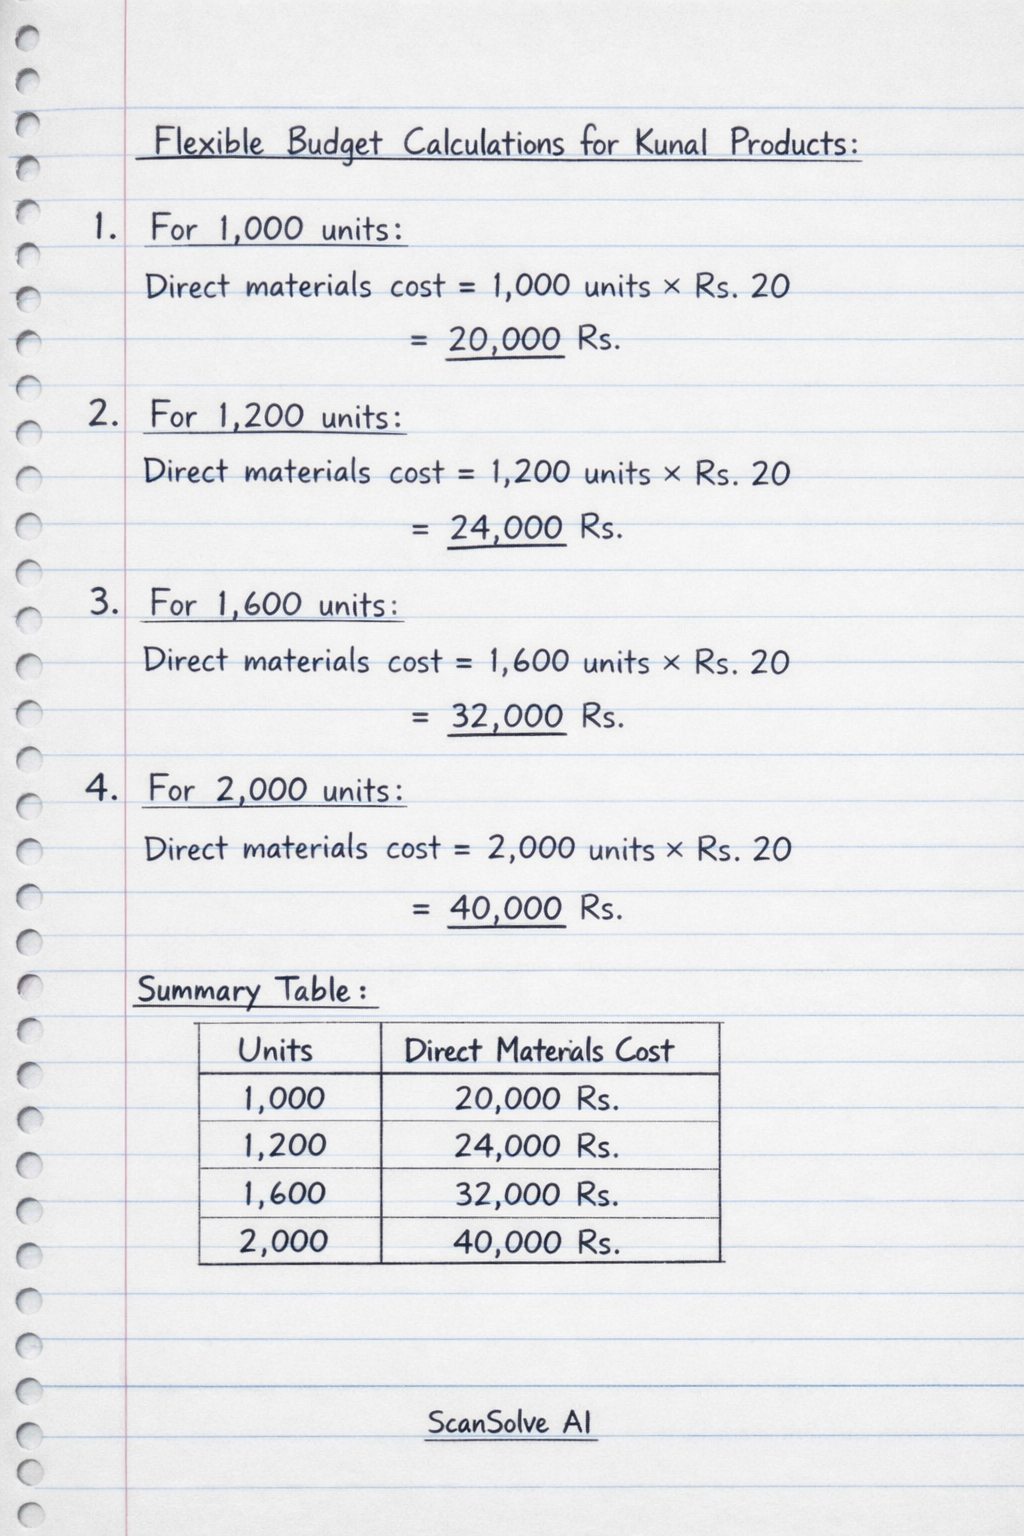 Flexible Budget Calculations for Kunal Products:
1. For 1,000 units:
Direct materials cost = 1,000 units × Rs. 20
= 20,000 Rs.
2. For 1,200 units:
Direct materials cost = 1,200 units × Rs. 20
= 24,000 Rs.
3. For 1,600 units:
Direct materials cost = 1,600 units × Rs. 20
= 32,000 Rs.
4. For 2,000 units:
Direct materials cost = 2,000 units × Rs. 20
= 40,000 Rs.
Summary Table:
Units Direct Materials Cost
1,000 20,000 Rs.
1,200 24,000 Rs.
1,600 32,000 Rs.
2,000 40,000 Rs.
ScanSolve AI